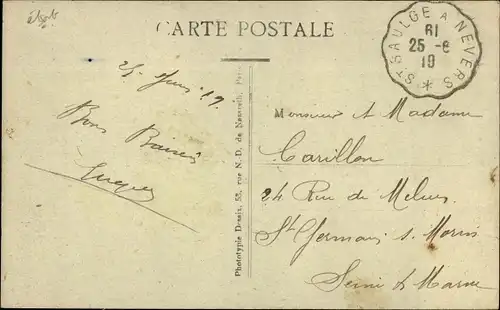 CARTE POSTALE
ST SAULGE A NEVERS
61
25 - 6
19
25 Juin 19
Bons Baisers
Monsieur et Madame
Carillon
24 Rue de Melun
St Germain s. Morin
Seine & Marne
Phototypie Desaix, 53, rue N.-D. de Nazareth, Paris